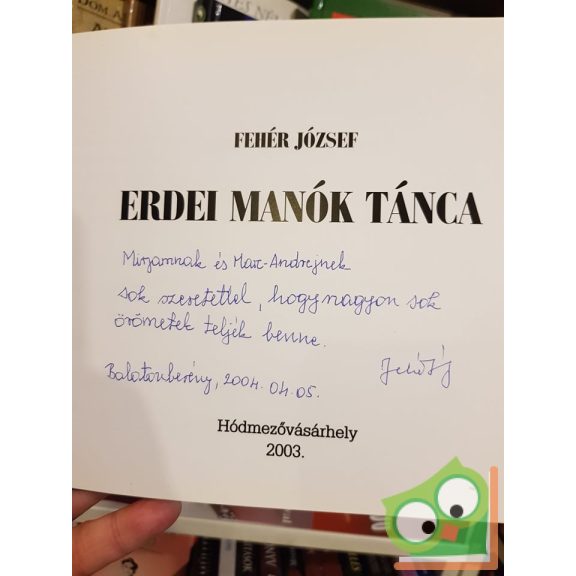 FEHÉR JÓZSEF
ERDEI MANÓK TÁNCA
Mirjamnak és Marc-Andrejnek
sok szeretettel, hogy nagyon sok
örömetek teljék benne.
Balatonberény, 2004. 04. 05.
Hódmezővásárhely
2003.